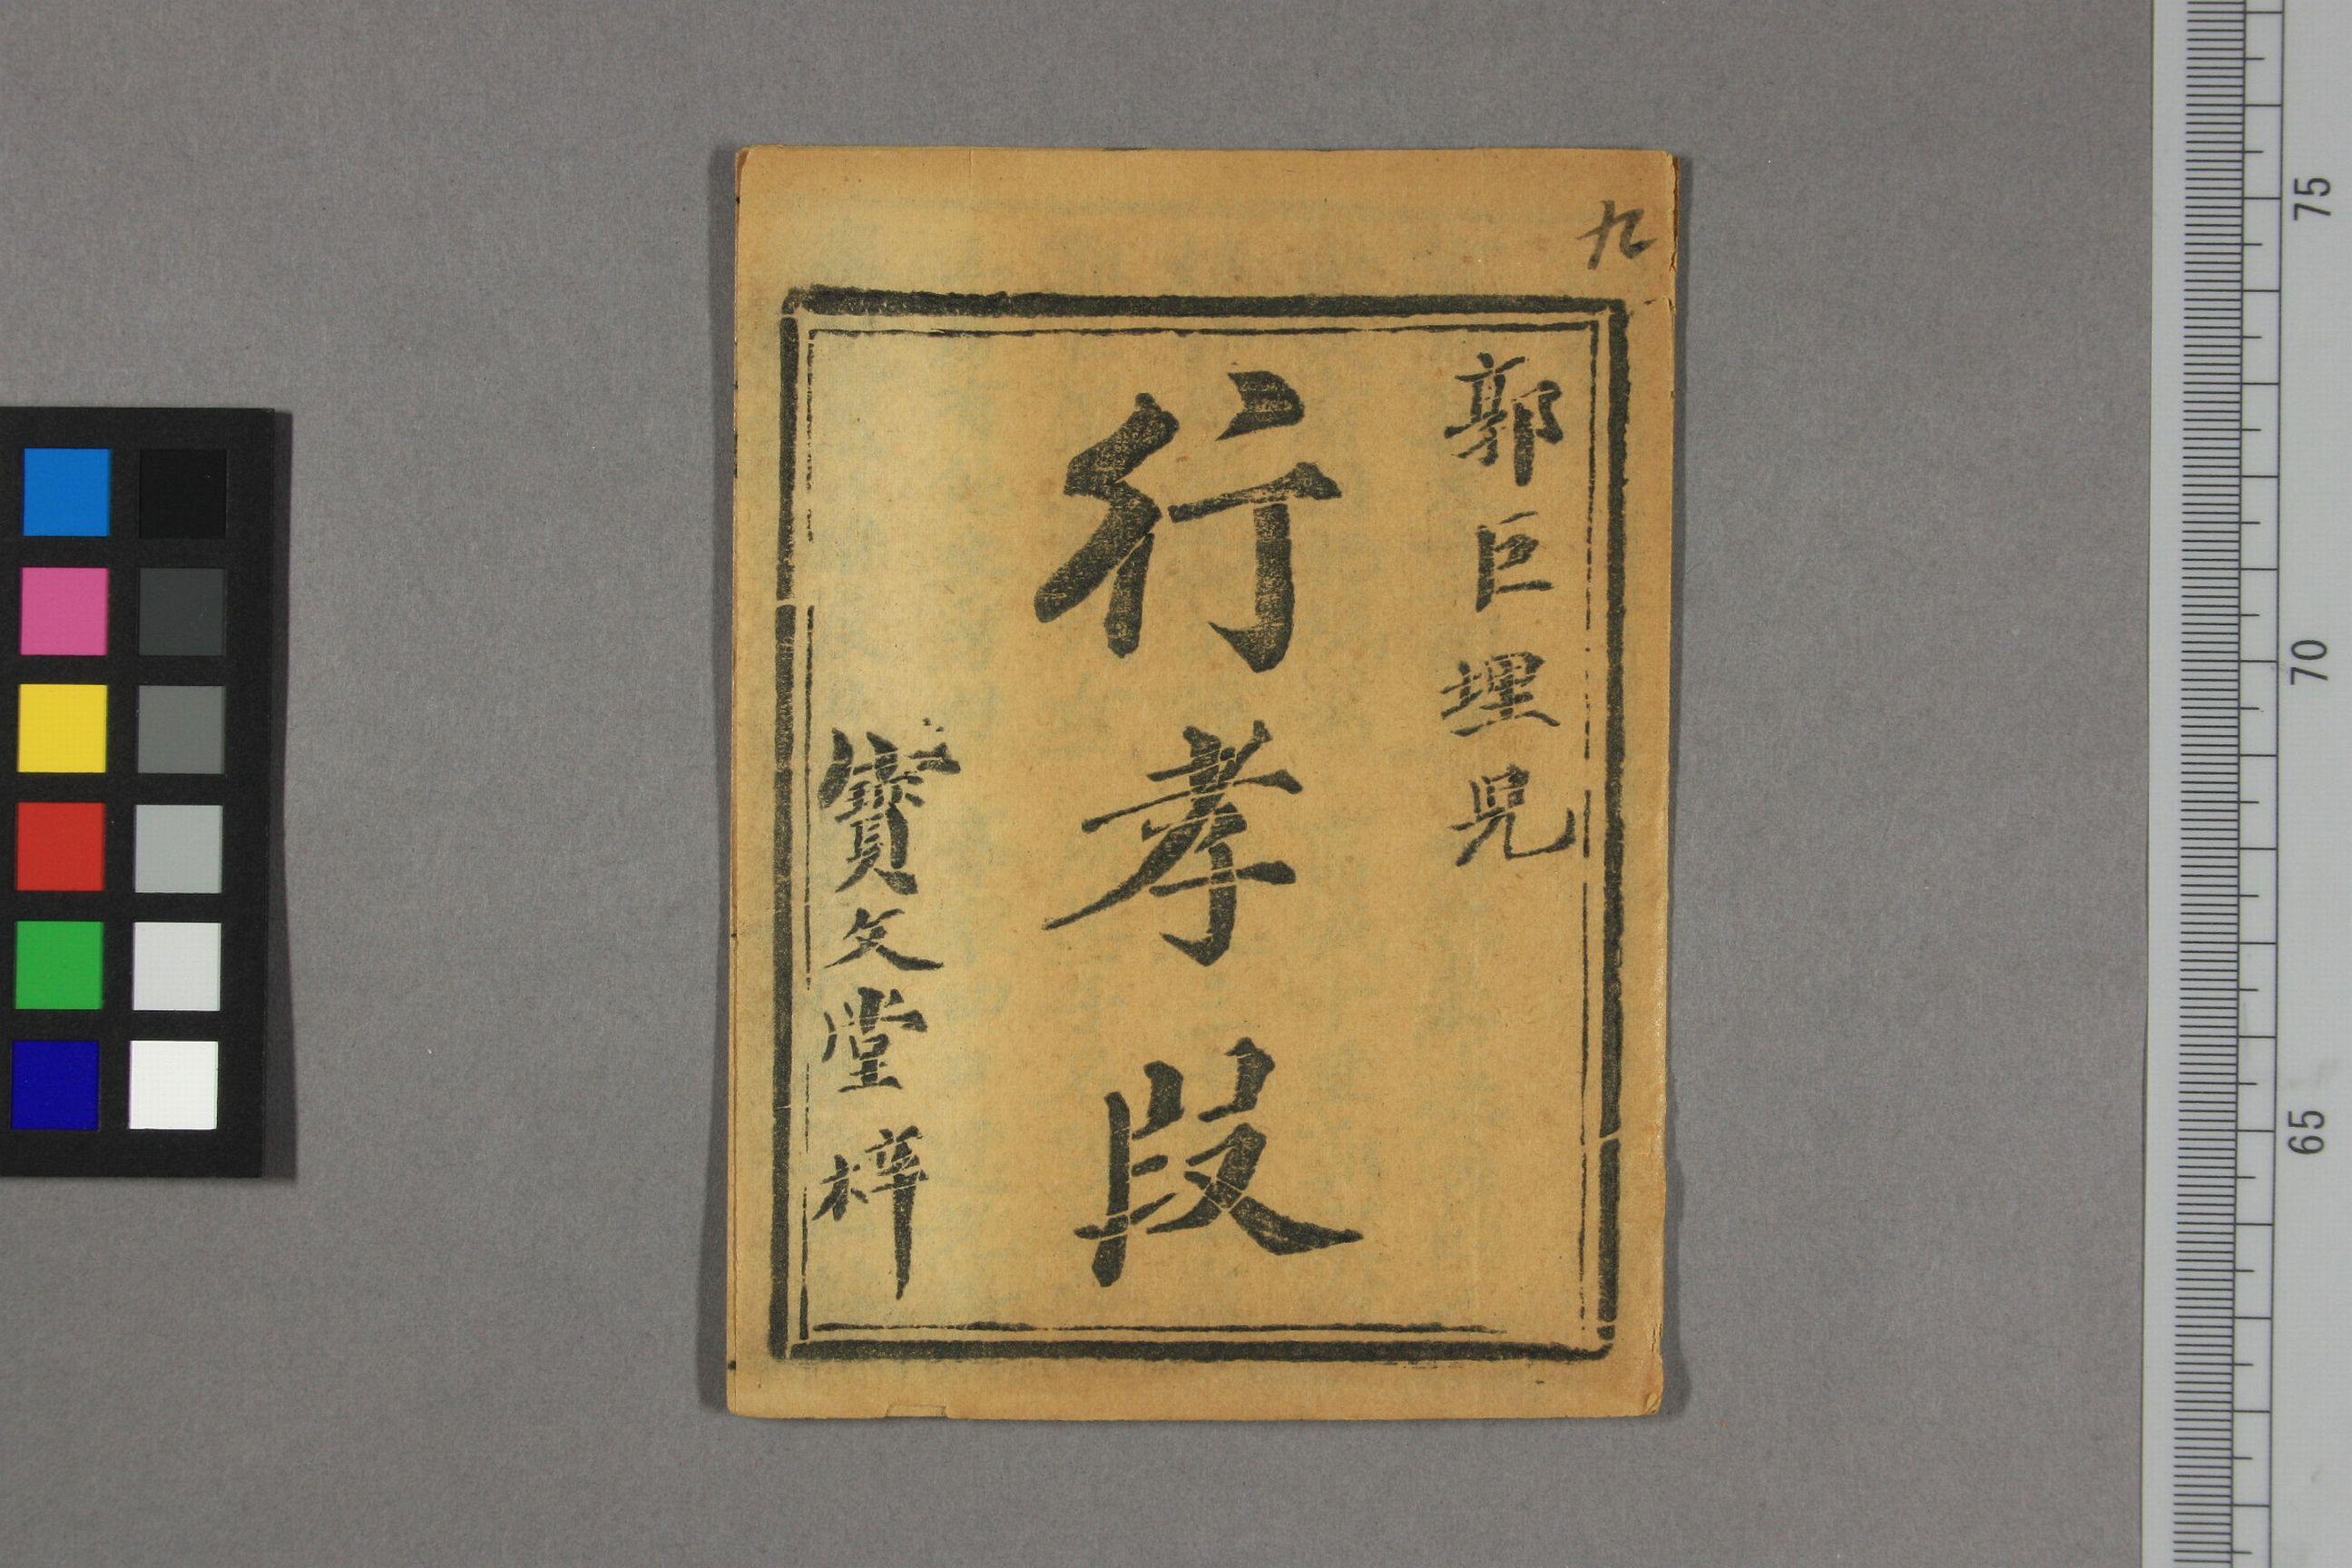 九
郭巨埋児
行孝段
寳文堂梓
75
70
65